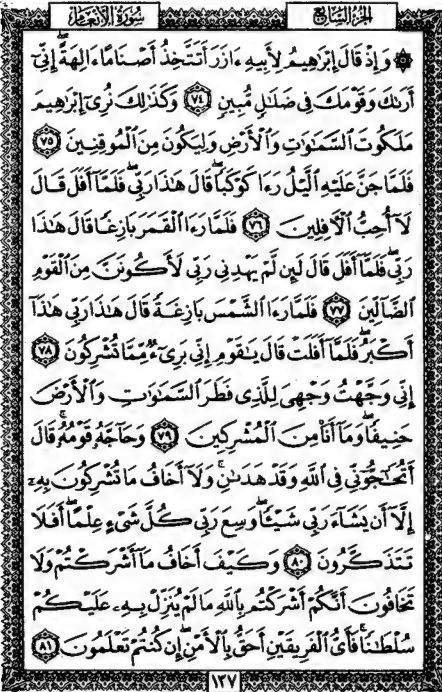 الجزء السابع
سورة الأنعام
۞ وَإِذْ قَالَ إِبْرَٰهِيمُ لِأَبِيهِ ءَازَرَ أَتَتَّخِذُ أَصْنَامًا ءَالِهَةً ۖ إِنِّىٓ
أَرَىٰكَ وَقَوْمَكَ فِى ضَلَٰلٍ مُّبِينٍ ٧٤ وَكَذَٰلِكَ نُرِىٓ إِبْرَٰهِيمَ
مَلَكُوتَ ٱلسَّمَٰوَٰتِ وَٱلْأَرْضِ وَلِيَكُونَ مِنَ ٱلْمُوقِنِينَ ٧٥
فَلَمَّا جَنَّ عَلَيْهِ ٱلَّيْلُ رَءَا كَوْكَبًا ۖ قَالَ هَٰذَا رَبِّى ۖ فَلَمَّآ أَفَلَ قَالَ
لَآ أُحِبُّ ٱلْءَافِلِينَ ٧٦ فَلَمَّا رَءَا ٱلْقَمَرَ بَازِغًا قَالَ هَٰذَا
رَبِّى ۖ فَلَمَّآ أَفَلَ قَالَ لَئِن لَّمْ يَهْدِنِى رَبِّى لَأَكُونَنَّ مِنَ ٱلْقَوْمِ
ٱلضَّآلِّينَ ٧٧ فَلَمَّا رَءَا ٱلشَّمْسَ بَازِغَةً قَالَ هَٰذَا رَبِّى هَٰذَآ
أَكْبَرُ ۖ فَلَمَّآ أَفَلَتْ قَالَ يَٰقَوْمِ إِنِّى بَرِىٓءٌ مِّمَّا تُشْرِكُونَ ٧٨
إِنِّى وَجَّهْتُ وَجْهِىَ لِلَّذِى فَطَرَ ٱلسَّمَٰوَٰتِ وَٱلْأَرْضَ
حَنِيفًا ۖ وَمَآ أَنَا۠ مِنَ ٱلْمُشْرِكِينَ ٧٩ وَحَآجَّهُۥ قَوْمُهُۥ ۚ قَالَ
أَتُحَٰٓجُّوٓنِّى فِى ٱللَّهِ وَقَدْ هَدَىٰنِ ۚ وَلَآ أَخَافُ مَا تُشْرِكُونَ بِهِۦٓ
إِلَّآ أَن يَشَآءَ رَبِّى شَيْـًٔا ۗ وَسِعَ رَبِّى كُلَّ شَىْءٍ عِلْمًا ۗ أَفَلَا
تَتَذَكَّرُونَ ٨٠ وَكَيْفَ أَخَافُ مَآ أَشْرَكْتُمْ وَلَا
تَخَافُونَ أَنَّكُمْ أَشْرَكْتُم بِٱللَّهِ مَا لَمْ يُنَزِّلْ بِهِۦ عَلَيْكُمْ
سُلْطَٰنًا ۚ فَأَىُّ ٱلْفَرِيقَيْنِ أَحَقُّ بِٱلْأَمْنِ ۖ إِن كُنتُمْ تَعْلَمُونَ ٨١
١٣٧